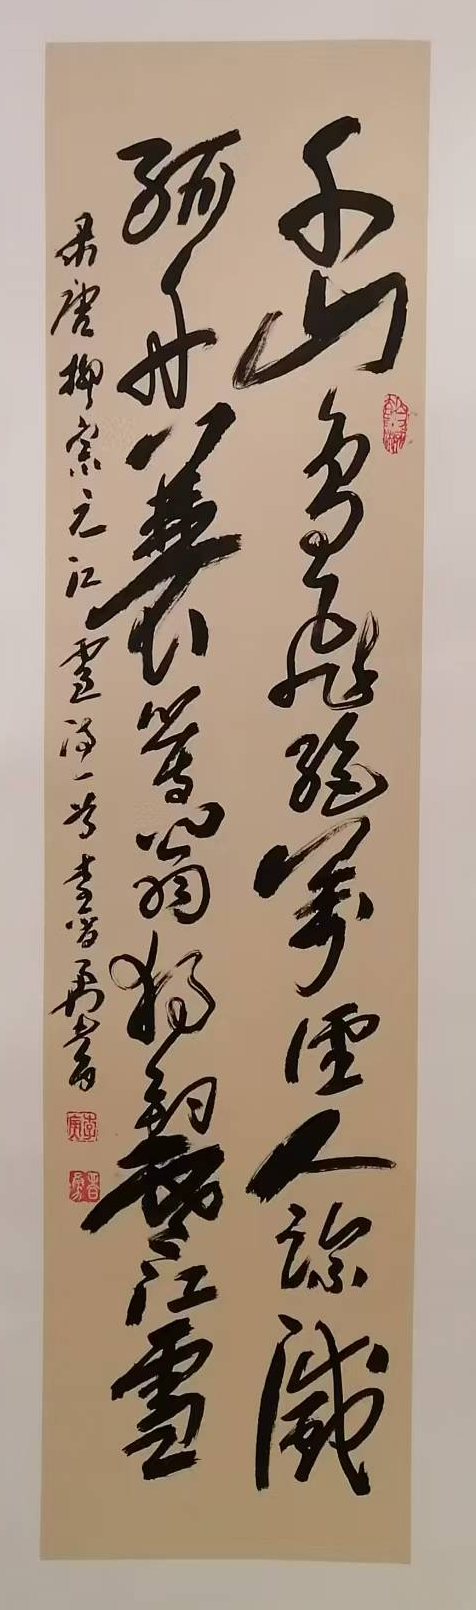 千山鳥飛絕萬徑人踪滅
孤舟蓑笠翁獨釣寒江雪
录唐柳宗元江雪詩一首李晋勇